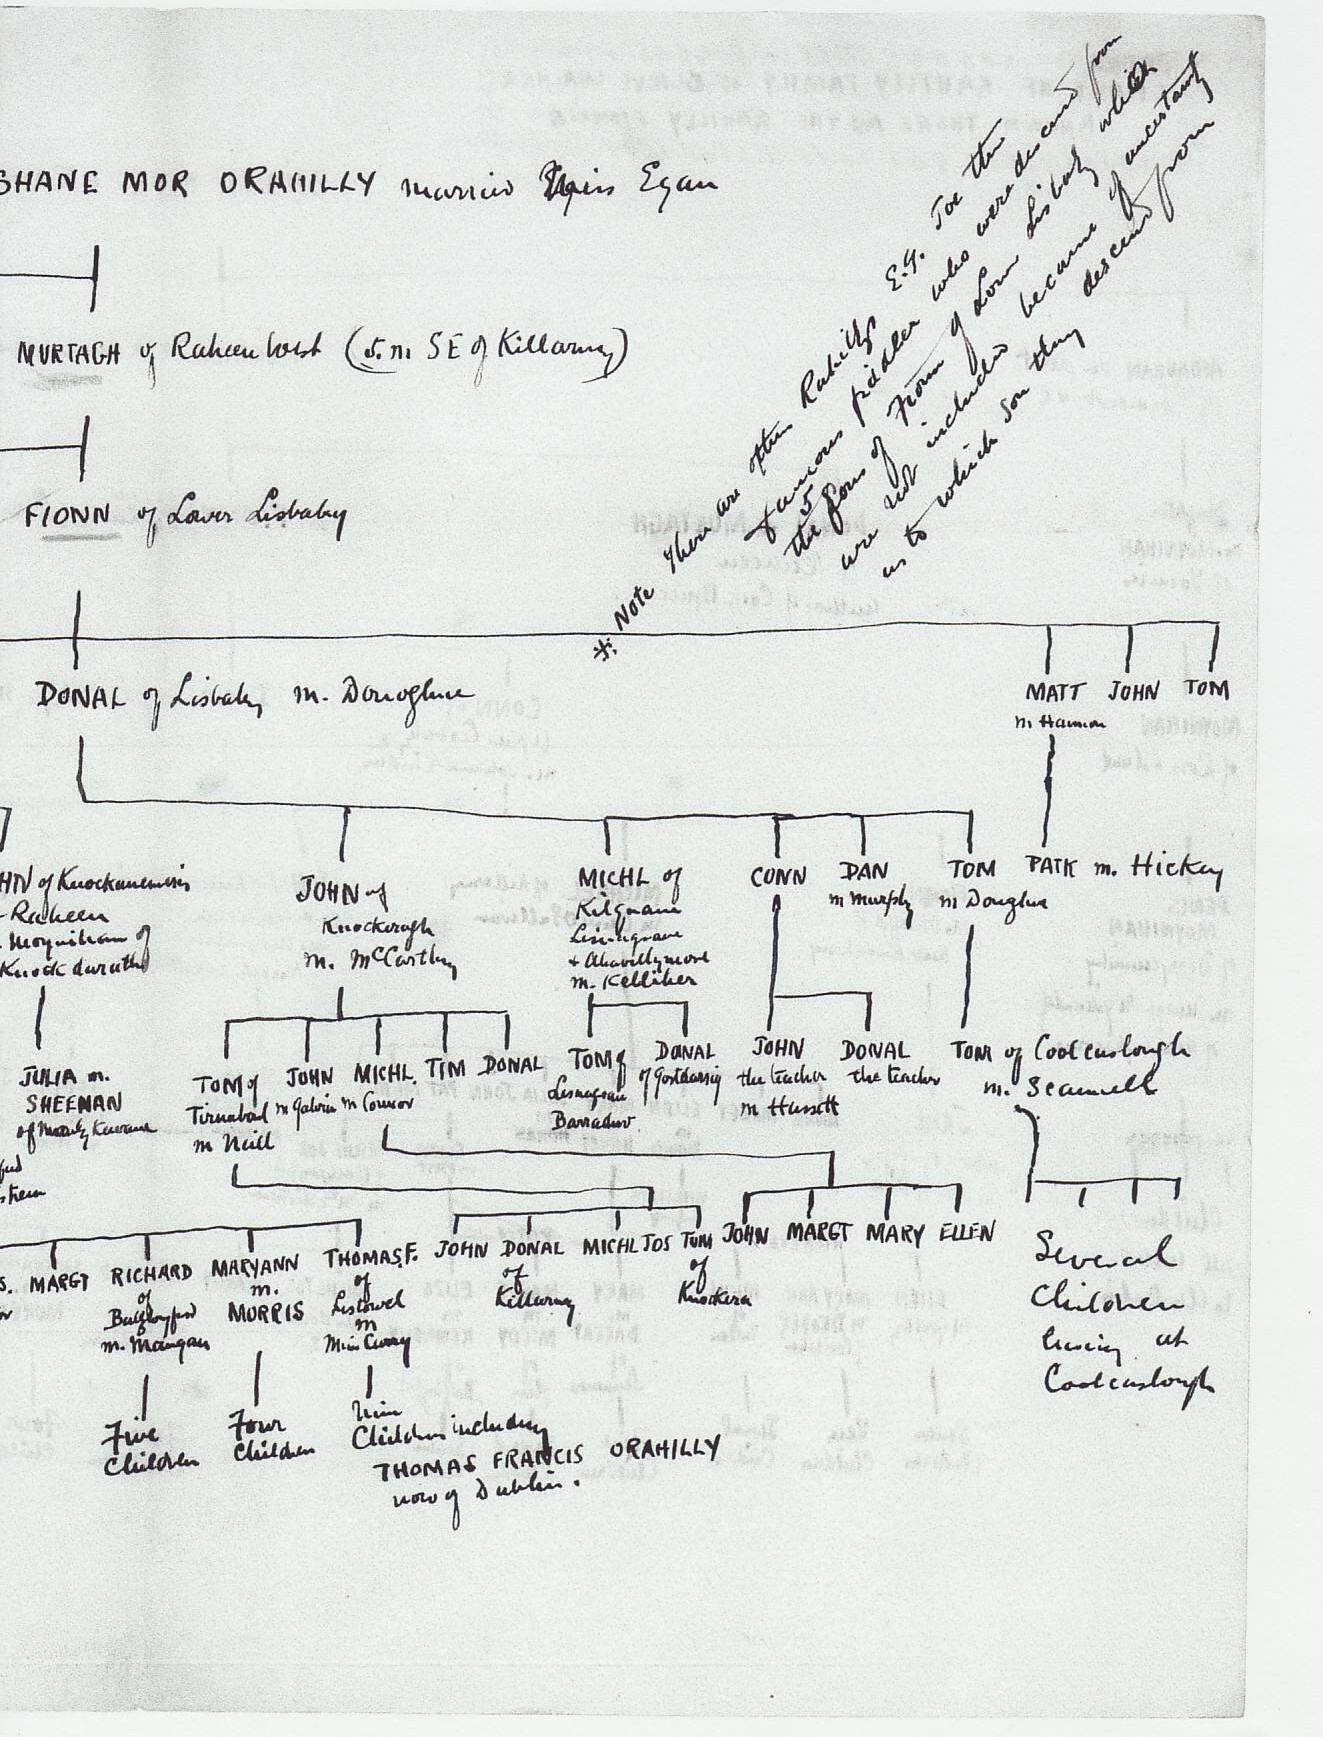 SHANE MOR ORAHILLY married Miss Egan
MURTAGH of Raheen West (5. m SE of Killarney)
FIONN of Lower Lisbaby
* Note There are other Rahillys E.G. Joe the
famous fiddler who were descend from
the 5 sons of Fionn of Lower Lisbaby which
are not included because of uncertainty
as to which son they descend from
DONAL of Lisbaby m. Donoghue
MATT JOHN TOM
m Hannon
HN of
Raheen
Moynihan of
JOHN of
Knockeragh
m. McCarthy
MICHL of
Kilquane
Lisnagrave
m. Kelliher
CONN
DAN
m Murphy
TOM
m Donoghue
PATK m. Hickey
JULIA m.
SHEEHAN
of
TOM of
Tirnaboul
m Neill
JOHN
m Galvin
MICHL.
m Connor
TIM DONAL
TOM of
Barraduv
DONAL
of Gortdarrig
JOHN
the teacher
m Hassett
DONAL
the teacher
TOM of Coolcaslough
m. Scannell
S. MARGT
RICHARD
of
m. Mangan
MARYANN
m.
MORRIS
THOMAS.F.
of
Listowel
m
Miss Curry
JOHN DONAL
of
Killarney
MICHL JOS TOM
of
Knockera
JOHN MARGT MARY ELLEN
Several
Children
living at
Coolcaslough
Five
Children
Four
Children
Nine
Children including
THOMAS FRANCIS ORAHILLY
now of Dublin.